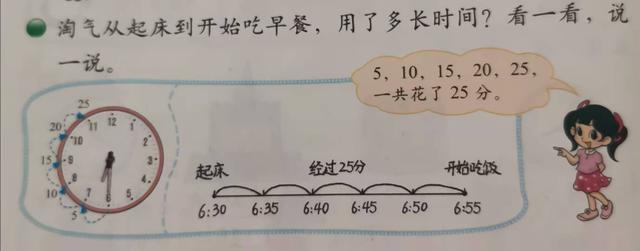 淘气从起床到开始吃早餐，用了多长时间？看一看，说
一说。
5，10，15，20，25，
一共花了 25 分。
25
20
15
10
5
12
1
2
3
4
5
6
7
8
9
10
11
起床 经过25分 开始吃饭
6:30 6:35 6:40 6:45 6:50 6:55